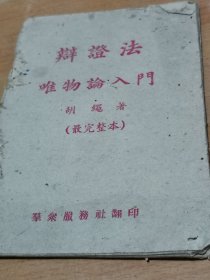 辯證法
唯物論入門
胡繩著
(最完整本)
羣衆服務社翻印